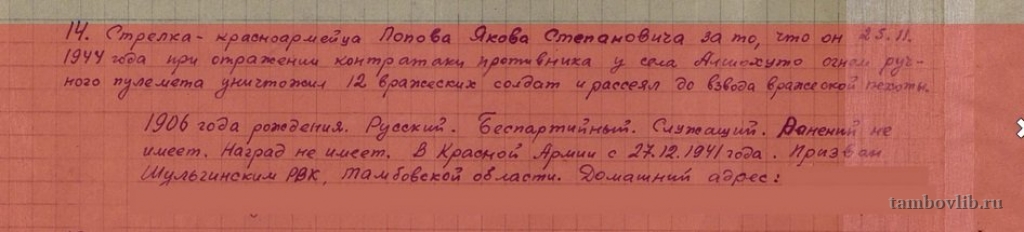 14. Стрелка-красноармейца Попова Якова Степановича за то, что он 25.11.
1944 года при отражении контратаки противника у села огнем руч-
ного пулемета уничтожил 12 вражеских солдат и рассеял до взвода вражеской пехоты.
1906 года рождения. Русский. Беспартийный. Служащий. Ранений не
имеет. Наград не имеет. В Красной Армии с 27.12.1941 года. Призван
Шульгинским РВК, Тамбовской области. Домашний адрес:
tambovlib.ru